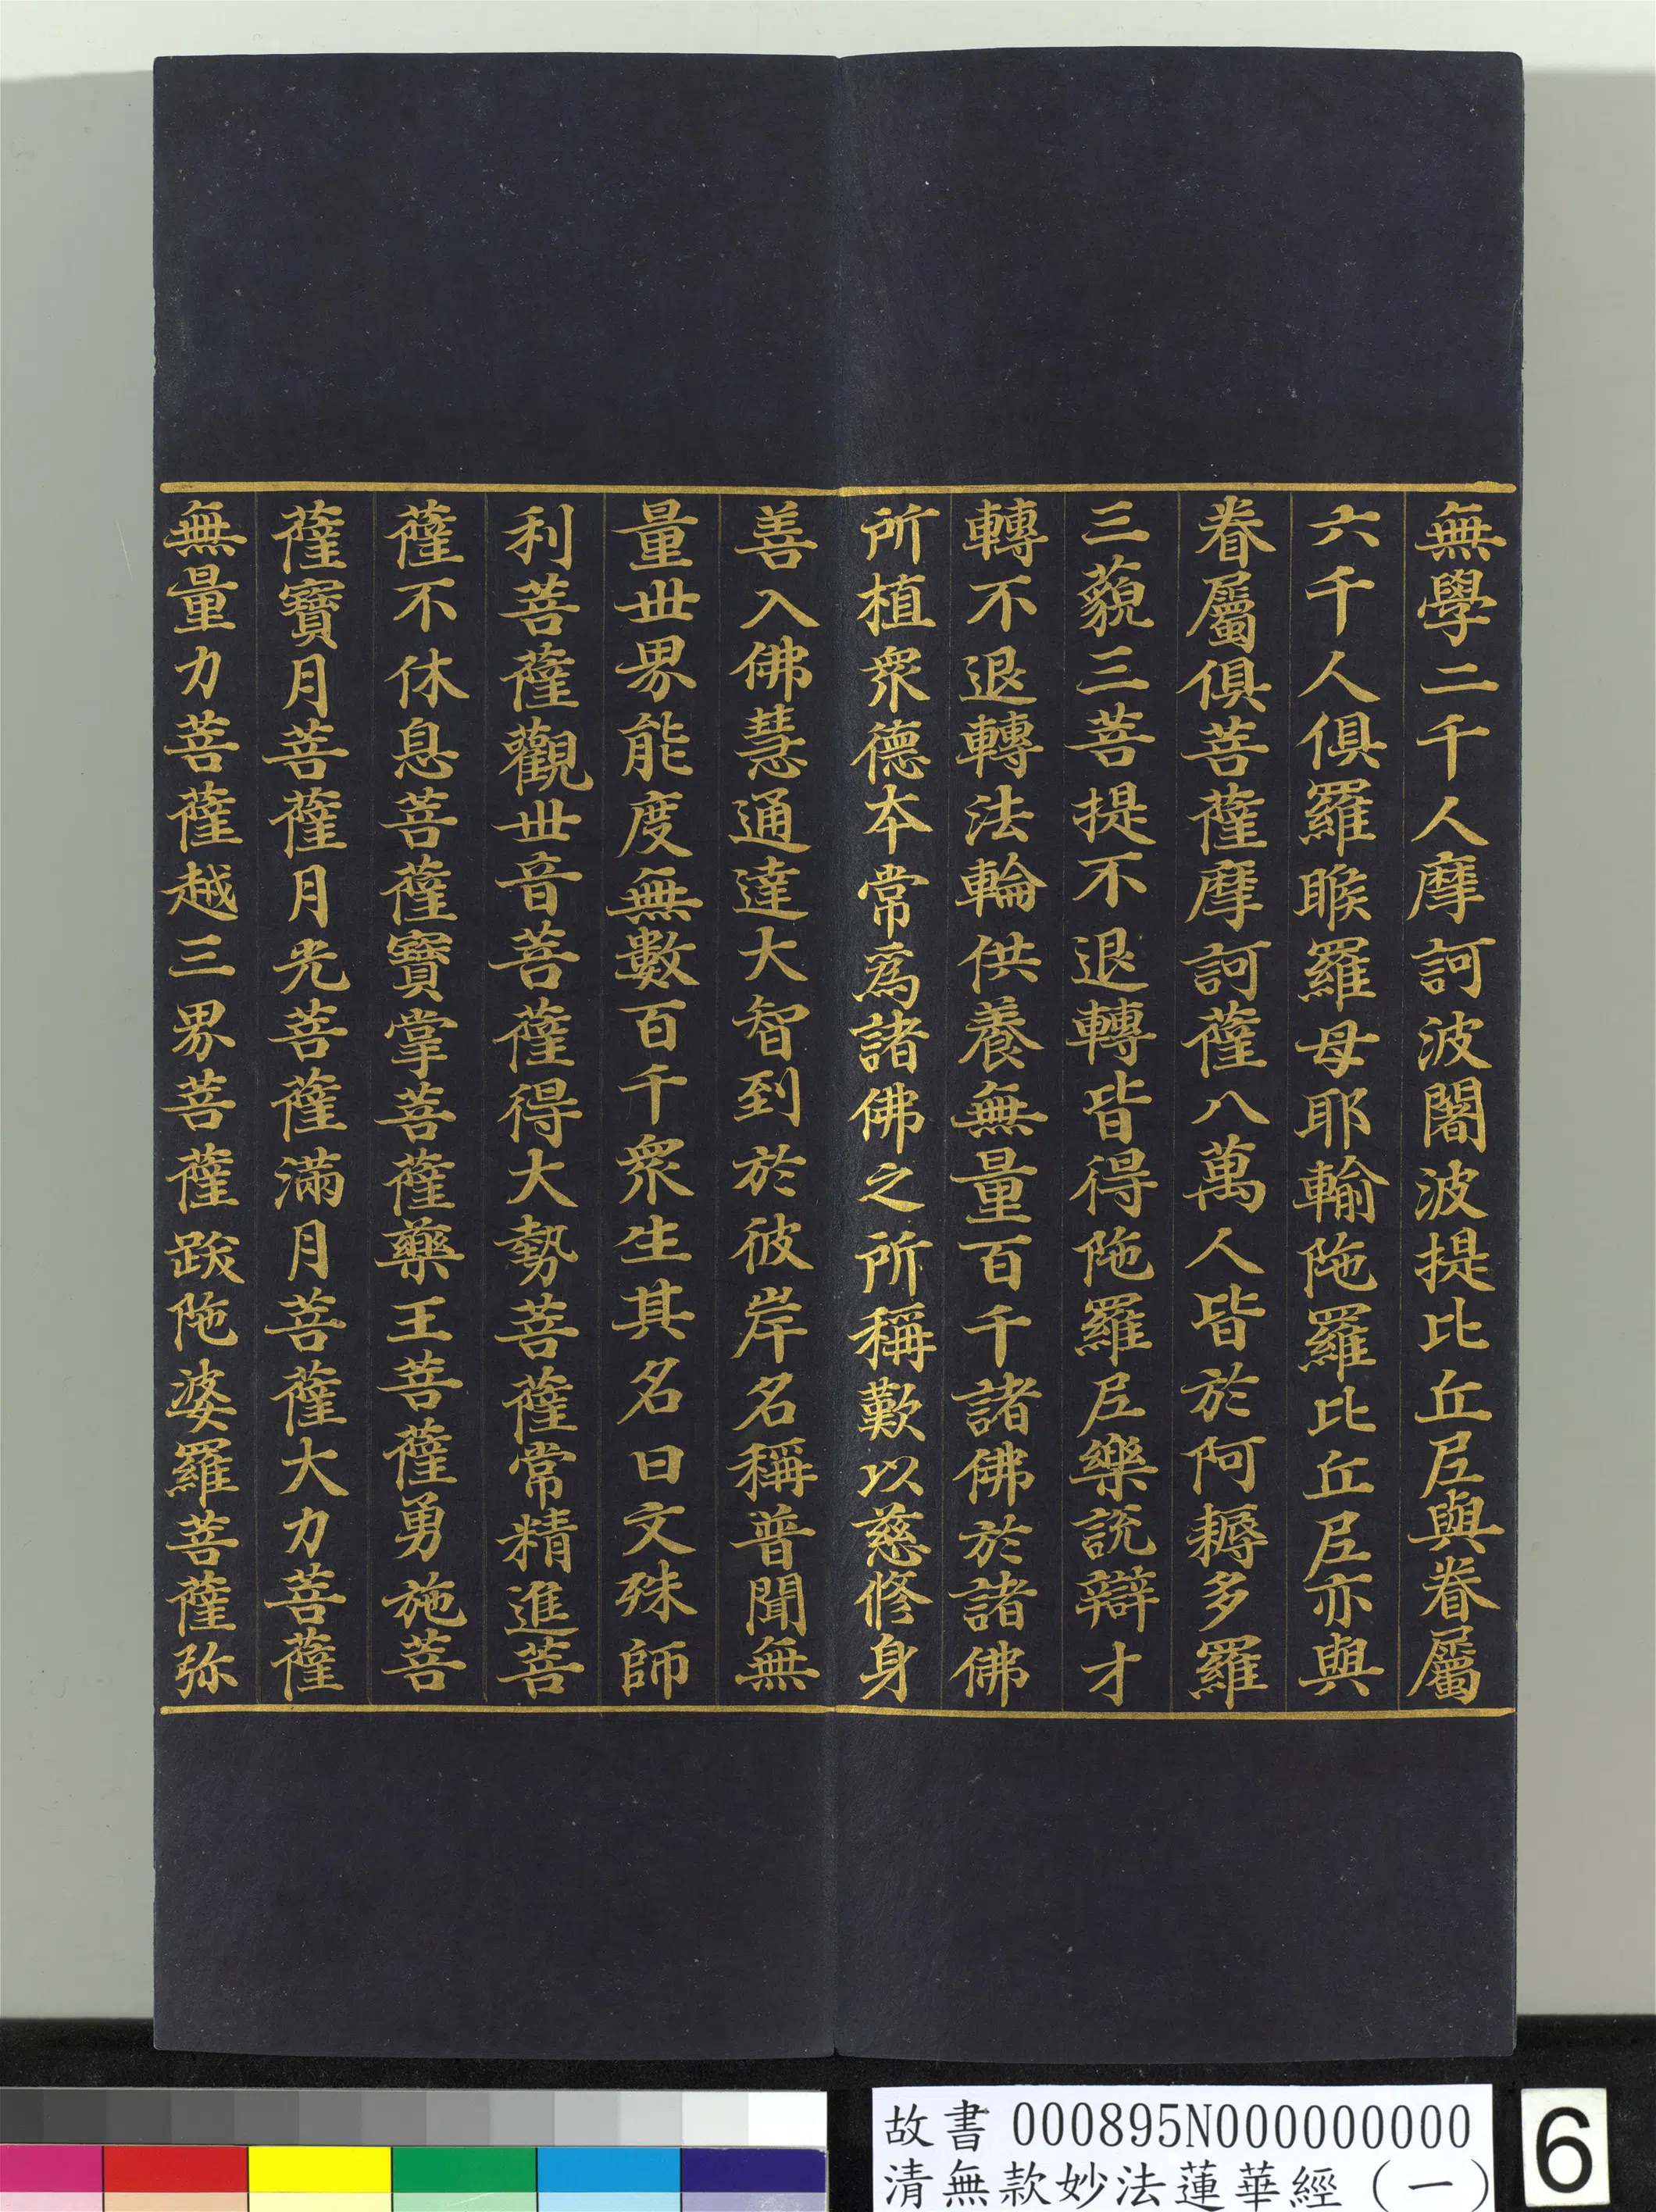 無學二千人摩訶波闍波提比丘尼與眷屬
六千人俱羅睺羅母耶輸陁羅比丘尼亦與
眷屬俱菩薩摩訶薩八萬人皆於阿耨多羅
三藐三菩提不退轉皆得陁羅尼樂說辯才
轉不退轉法輪供養無量百千諸佛於諸佛
所植衆德本常爲諸佛之所稱歎以慈修身
善入佛慧通達大智到於彼岸名稱普聞無
量世界能度無數百千衆生其名曰文殊師
利菩薩觀世音菩薩得大勢菩薩常精進菩
薩不休息菩薩寶掌菩薩藥王菩薩勇施菩
薩寶月菩薩月光菩薩滿月菩薩大力菩薩
無量力菩薩越三界菩薩跋陁婆羅菩薩弥
故書 000895N000000000
清無款妙法蓮華經(一)
6